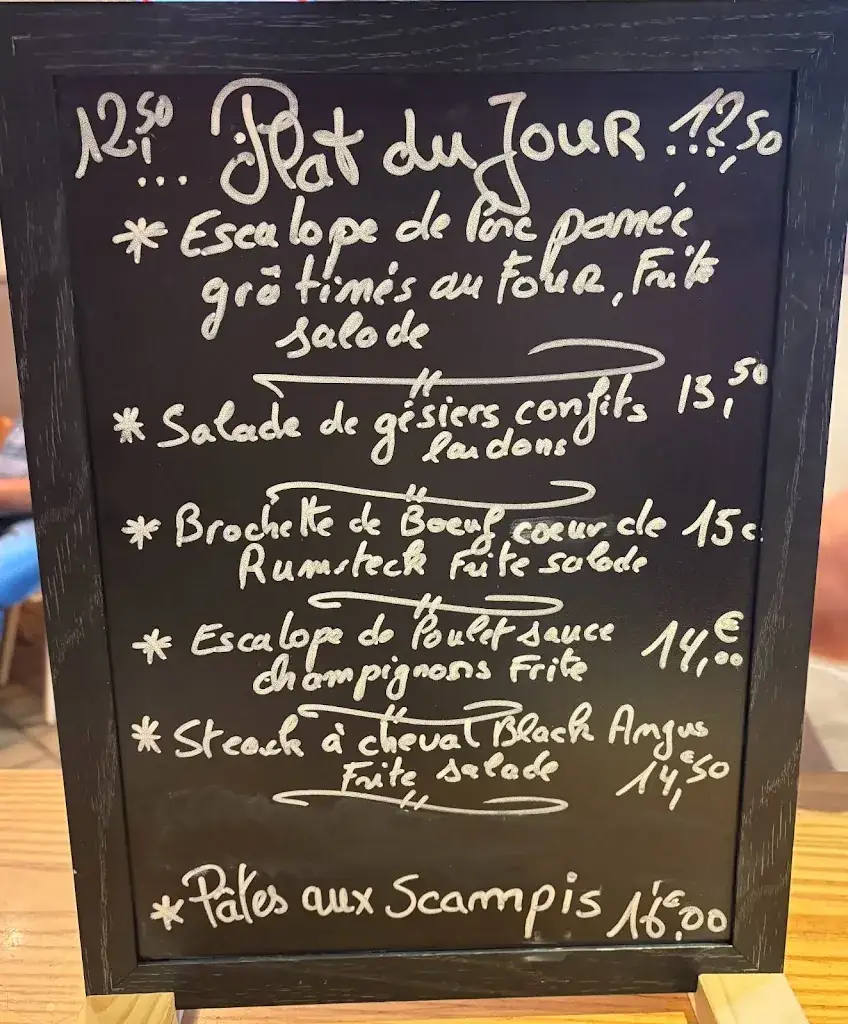 12,50 ... Plat du Jour ... 12,50
* Escalope de Porc pamée
gratimés au Four, Frite
salade
* Salade de gésiers confits 13,50
lardons
* Brochette de Boeuf coeur de 15€
Rumsteck Frite salade
* Escalope de Poulet sauce
champignons Frite 14,00€
* Steack à cheval Black Angus
Frite salade 14,50€
* Pâtes aux Scampis 16,00€